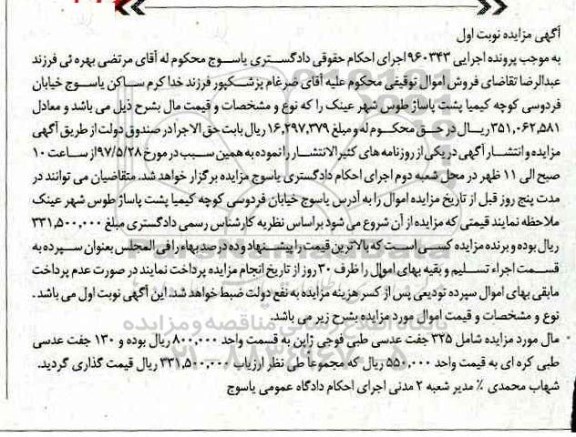 آگهی مزایده نوبت اول
به موجب پرونده اجرایی ۹۶۰۳۴۳ اجرای احکام حقوقی دادگستری یاسوج محکوم له آقای مرتضی بهره ئی فرزند
عبدالرضا تقاضای فروش اموال توقیفی محکوم علیه آقای ضرغام پزشکپور فرزند خدا کرم ساکن یاسوج خیابان
فردوسی کوچه کیمیا پشت پاساژ طوس شهر عینک را که نوع و مشخصات و قیمت مال بشرح ذیل می باشد و معادل
۳۵۱,۰۶۲,۵۸۱ ریال در حق محکوم له و مبلغ ۱۶,۲۹۷,۳۷۹ ریال بابت حق الاجرا در صندوق دولت از طریق آگهی
مزایده و انتشار آگهی در یکی از روزنامه های کثیر الانتشار را نموده به همین سبب در مورخ ۹۷/۵/۲۸ از ساعت ۱۰
صبح الی ۱۱ ظهر در محل شعبه دوم اجرای احکام دادگستری یاسوج مزایده برگزار خواهد شد. متقاضیان می توانند در
مدت پنج روز قبل از تاریخ مزایده اموال را به آدرس یاسوج خیابان فردوسی کوچه کیمیا پشت پاساژ طوس شهر عینک
ملاحظه نمایند قیمتی که مزایده از آن شروع می شود براساس نظریه کارشناس رسمی دادگستری مبلغ ۳۳۱,۵۰۰,۰۰۰
ریال بوده و برنده مزایده کسی است که بالاترین قیمت را پیشنهاد و ده درصد بهاء را فی المجلس بعنوان سپرده به
قسمت اجراء تسلیم و بقیه بهای اموال را ظرف ۳۰ روز از تاریخ انجام مزایده پرداخت نمایند در صورت عدم پرداخت
مابقی بهای اموال سپرده تودیعی پس از کسر هزینه مزایده به نفع دولت ضبط خواهد شد. این آگهی نوبت اول می باشد .
نوع و مشخصات و قیمت اموال مورد مزایده بشرح زیر می باشد.
مال مورد مزایده شامل ۳۲۵ جفت عدسی طبی فوجی ژاپن به قسمت واحد ۸۰۰,۰۰۰ ریال بوده و ۱۳۰ جفت عدسی
طبی کره ای به قیمت واحد ۵۵۰,۰۰۰ ریال که مجموعا طی نظر ارزیاب ۳۳۱,۵۰۰,۰۰۰ ریال قیمت گذاری گردید.
شهاب محمدی ٪ مدیر شعبه ۲ مدنی اجرای احکام دادگاه عمومی یاسوج